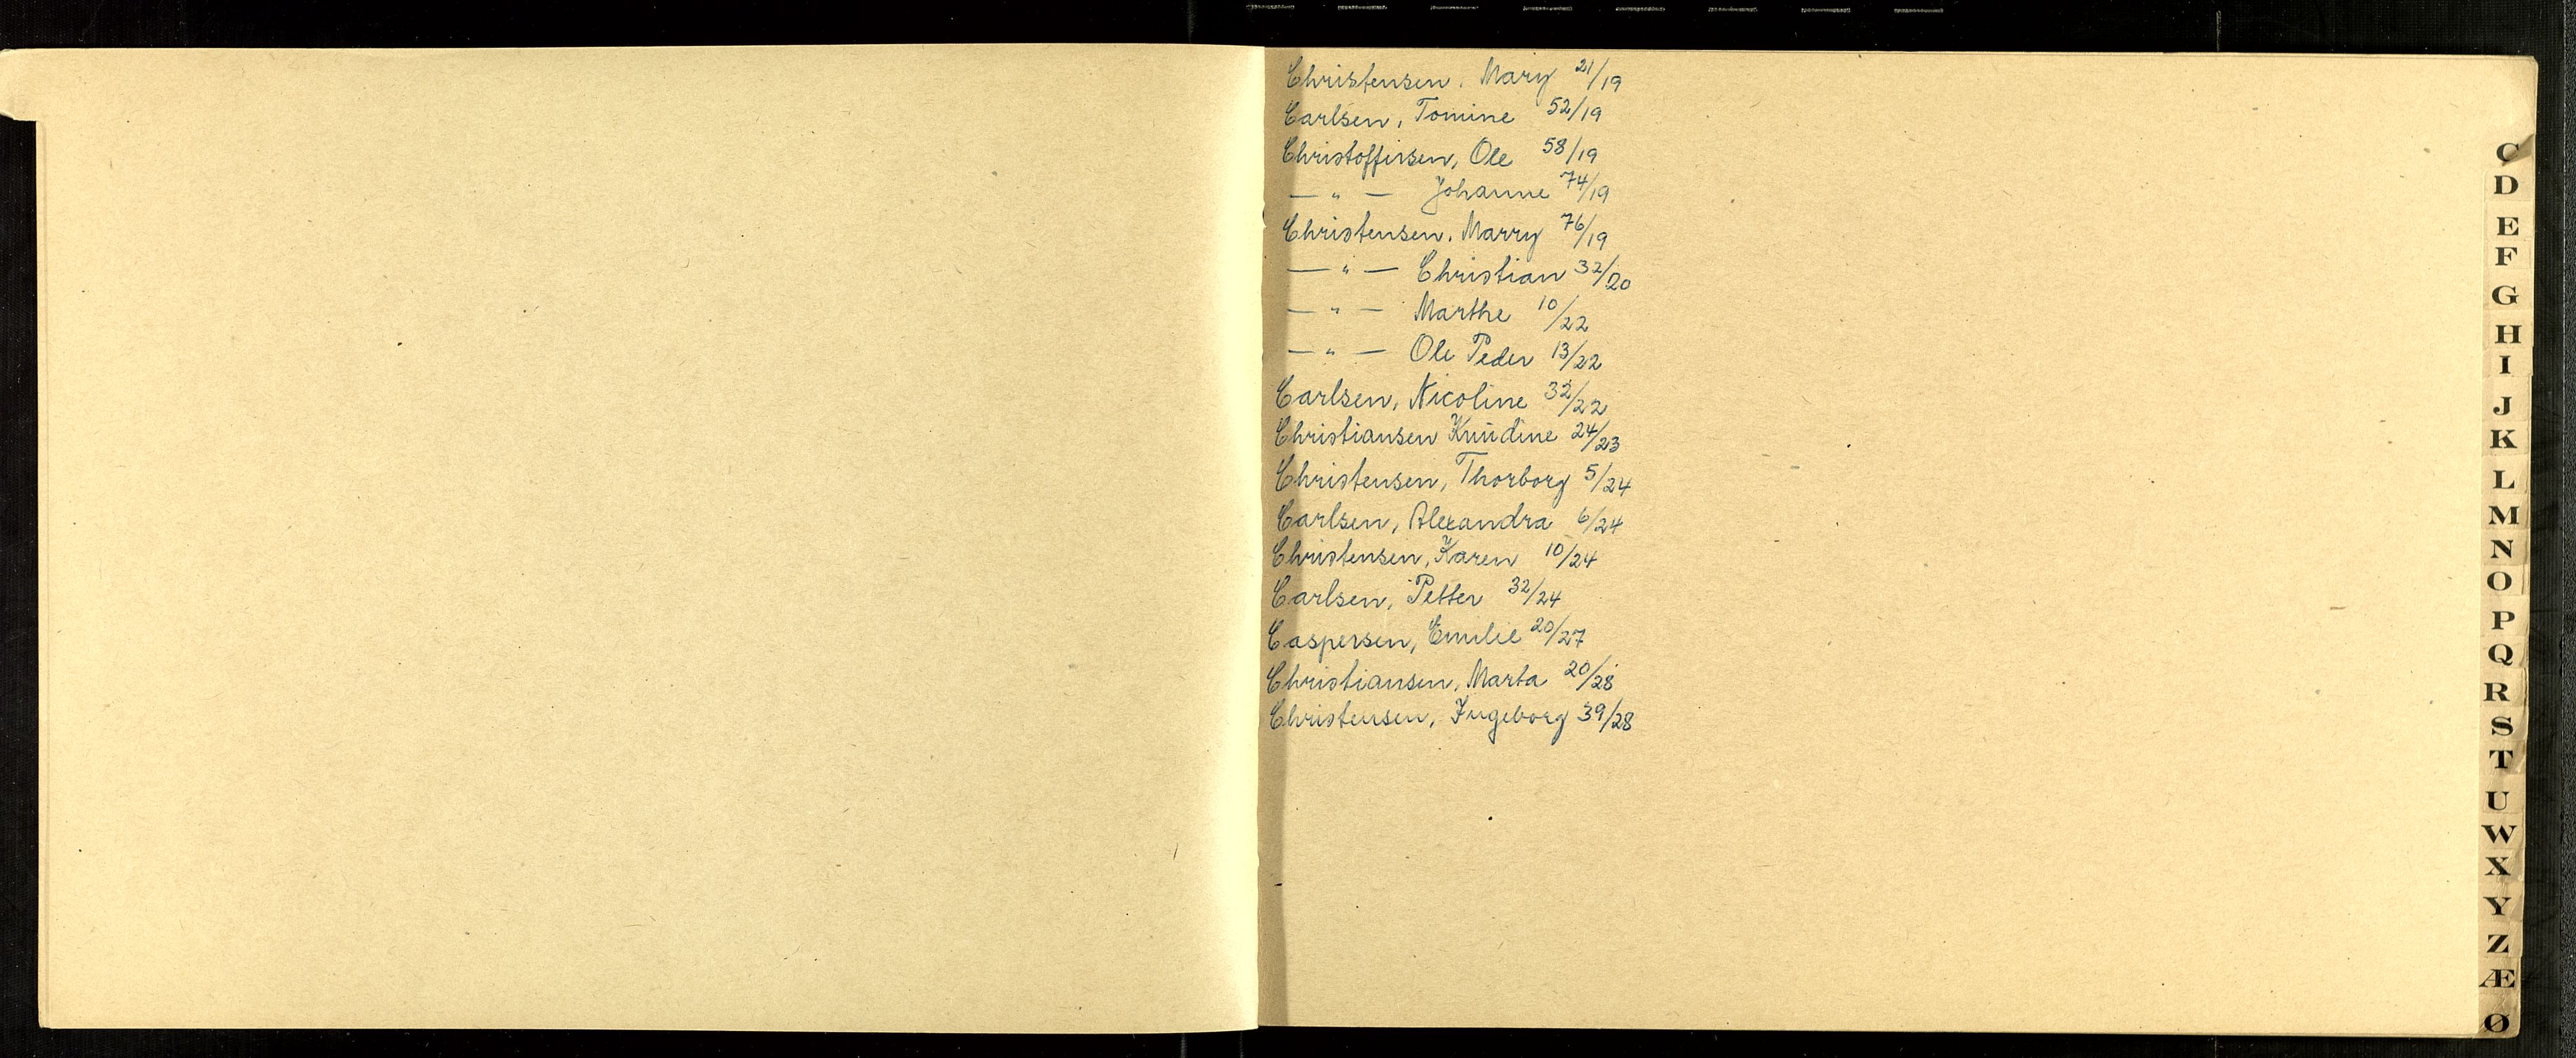 Christensen, Mary 21/19
Carlsen, Tomine 52/19
Christoffersen, Ole 58/19
— " — Johanne 74/19
Christensen, Marry 76/19
— " — Christian 32/20
— " — Marthe 10/22
— " — Ole Peder 13/22
Carlsen, Nicoline 32/22
Christiansen Knudine 24/23
Christensen, Thorborg 5/24
Carlsen, Alexandra 6/24
Christensen, Karen 10/24
Carlsen, Petter 32/24
Caspersen, Emilie 20/27
Christiansen, Marta 20/28
Christensen, Ingeborg 39/28
C
D
E
F
G
H
I
J
K
L
M
N
O
P
Q
R
S
T
U
W
X
Y
Z
Æ
Ø